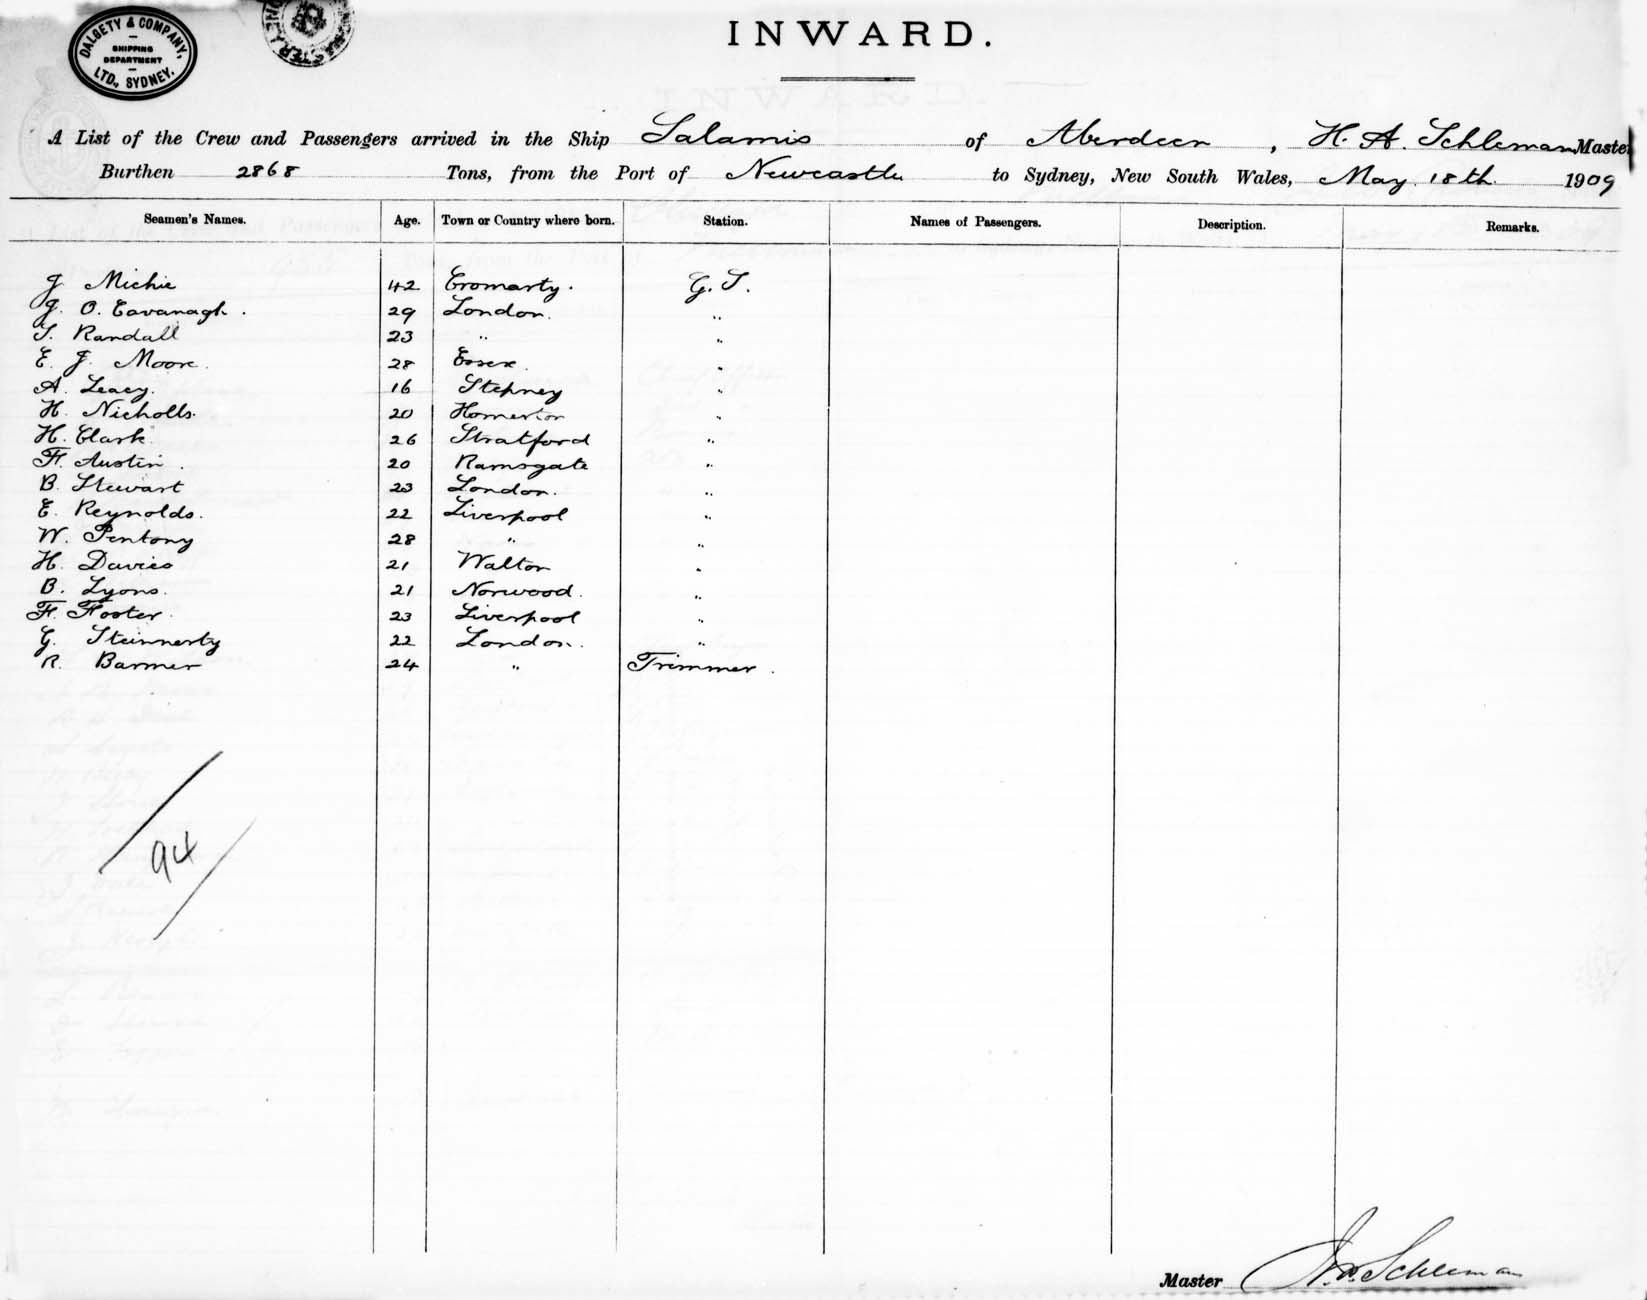 DALGETY & COMPANY, LTD., SYDNEY.
SHIPPING DEPARTMENT
INWARD.
A List of the Crew and Passengers arrived in the Ship Salamis of Aberdeen, H. A. Schleman Master
Burthen 2868 Tons, from the Port of Newcastle to Sydney, New South Wales, May 18th 1909
Seamen's Names. Age. Town or Country where born. Station. Names of Passengers. Description. Remarks.
J Michie 42 Cromarty. G. S.
J. O. Cavanagh. 29 London. "
S. Randall 23 " "
E. J. Moore. 28 Essex. "
A. Leacy. 16 Stepney "
H. Nicholls. 20 Homerton "
H. Clark 26 Stratford "
F. Austin. 20 Ramsgate "
B. Stewart 23 London. "
E. Reynolds. 22 Liverpool "
W. Pentony 28 " "
H. Davies 21 Walton "
B. Lyons. 21 Norwood. "
F. Foster. 23 Liverpool "
G. Steinnerty 22 London. "
R. Barmer 24 " Trimmer.
94
Master H. A. Schleman